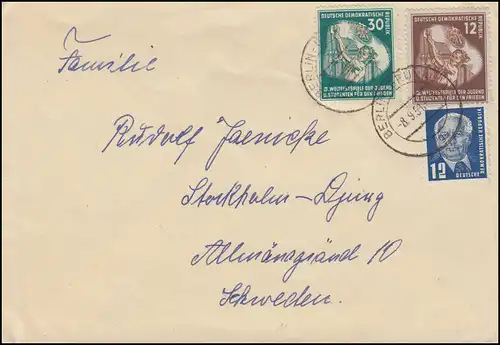 30
DEUTSCHE DEMOKRATISCHE REPUBLIK
III. WELTFESTSPIELE DER JUGEND
U. STUDENTEN FÜR DEN FRIEDEN
DEUTSCHE DEMOKRATISCHE REPUBLIK
12
III. WELTFESTSPIELE DER JUGEND
U. STUDENTEN FÜR DEN FRIEDEN
BERLIN-
BERLIN-
-8.9.5
12
DEUTSCHE
DEMOKRATISCHE REPUBLIK
Familie
Rudolf Jaenicke
Stockholm-Djurg
Allmänsgränd 10
Schweden.